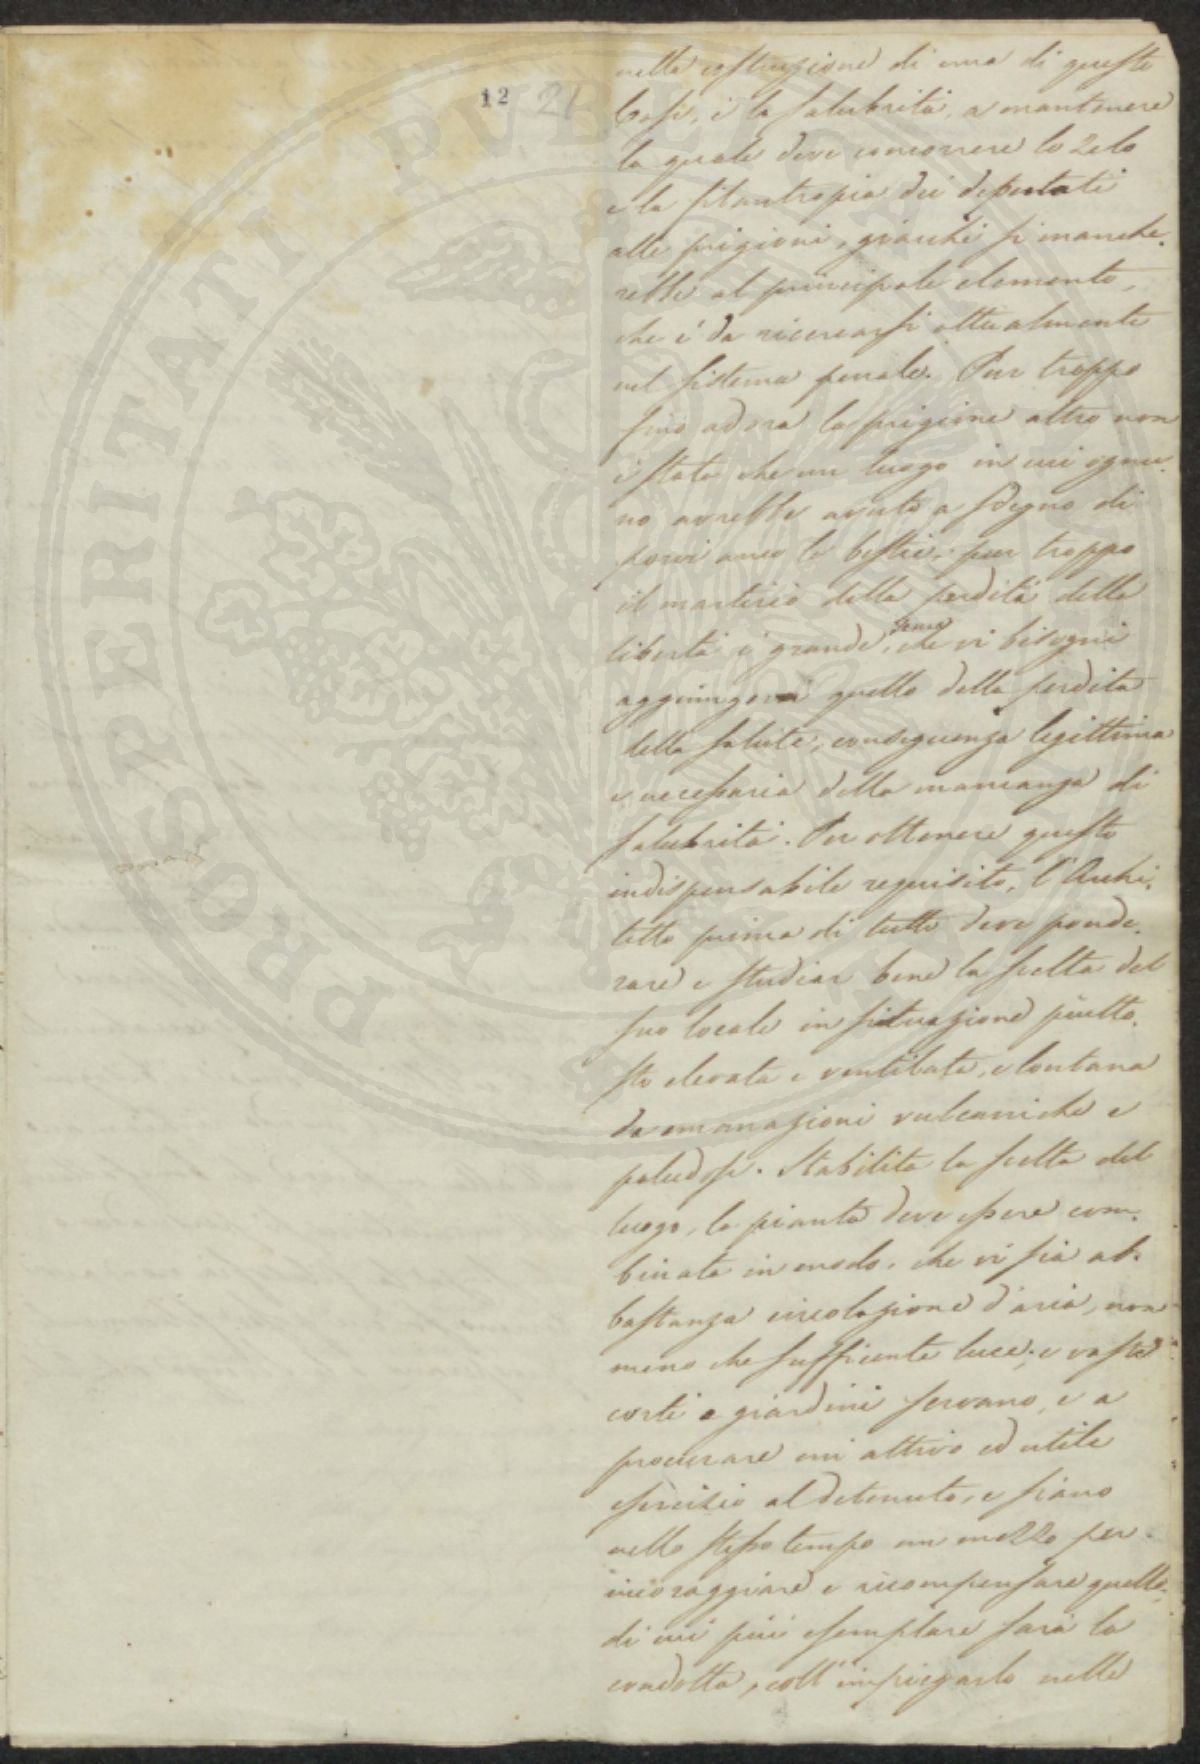 12 21
nella costruzione di una di queste
Case, è la salubrità, a mantenere
la quale deve concorrere lo zelo
e la filantropia dei deputati
alle prigioni, giacchè si manche-
rebbe al principale elemento,
che è da ricercarsi attualmente
nel sistema penale. Pur troppo
fino ad ora la prigione altro non
è stata che un luogo in cui ognu-
no avrebbe avuto a sdegno di
porvi anco le bestie, pur troppo
il martirio della perdita della
libertà è grande, senza che vi bisogni
aggiungervi quello della perdita
della salute, conseguenza legittima
e necessaria della mancanza di
salubrità. Per ottenere questo
indispensabile requisito, l'Archi-
tetto prima di tutto deve ponde-
rare e studiar bene la scelta del
suo locale in situazione piutto-
sto elevata e ventilata, e lontana
da emanazioni vulcaniche e
paludose. Stabilita la scelta del
luogo, la pianta deve essere com-
binata in modo, che vi sia ab-
bastanza circolazione d'aria, non
meno che sufficiente luce; e vaste
corti e giardini servano, e a
procurare un attivo ed utile
esercizio al detenuto, e siano
nello stesso tempo un mezzo per
incoraggiare e ricompensare quello,
di cui più esemplare sarà la
condotta, coll'impiegarlo nelle
PROSPERITATI PUBLICAE